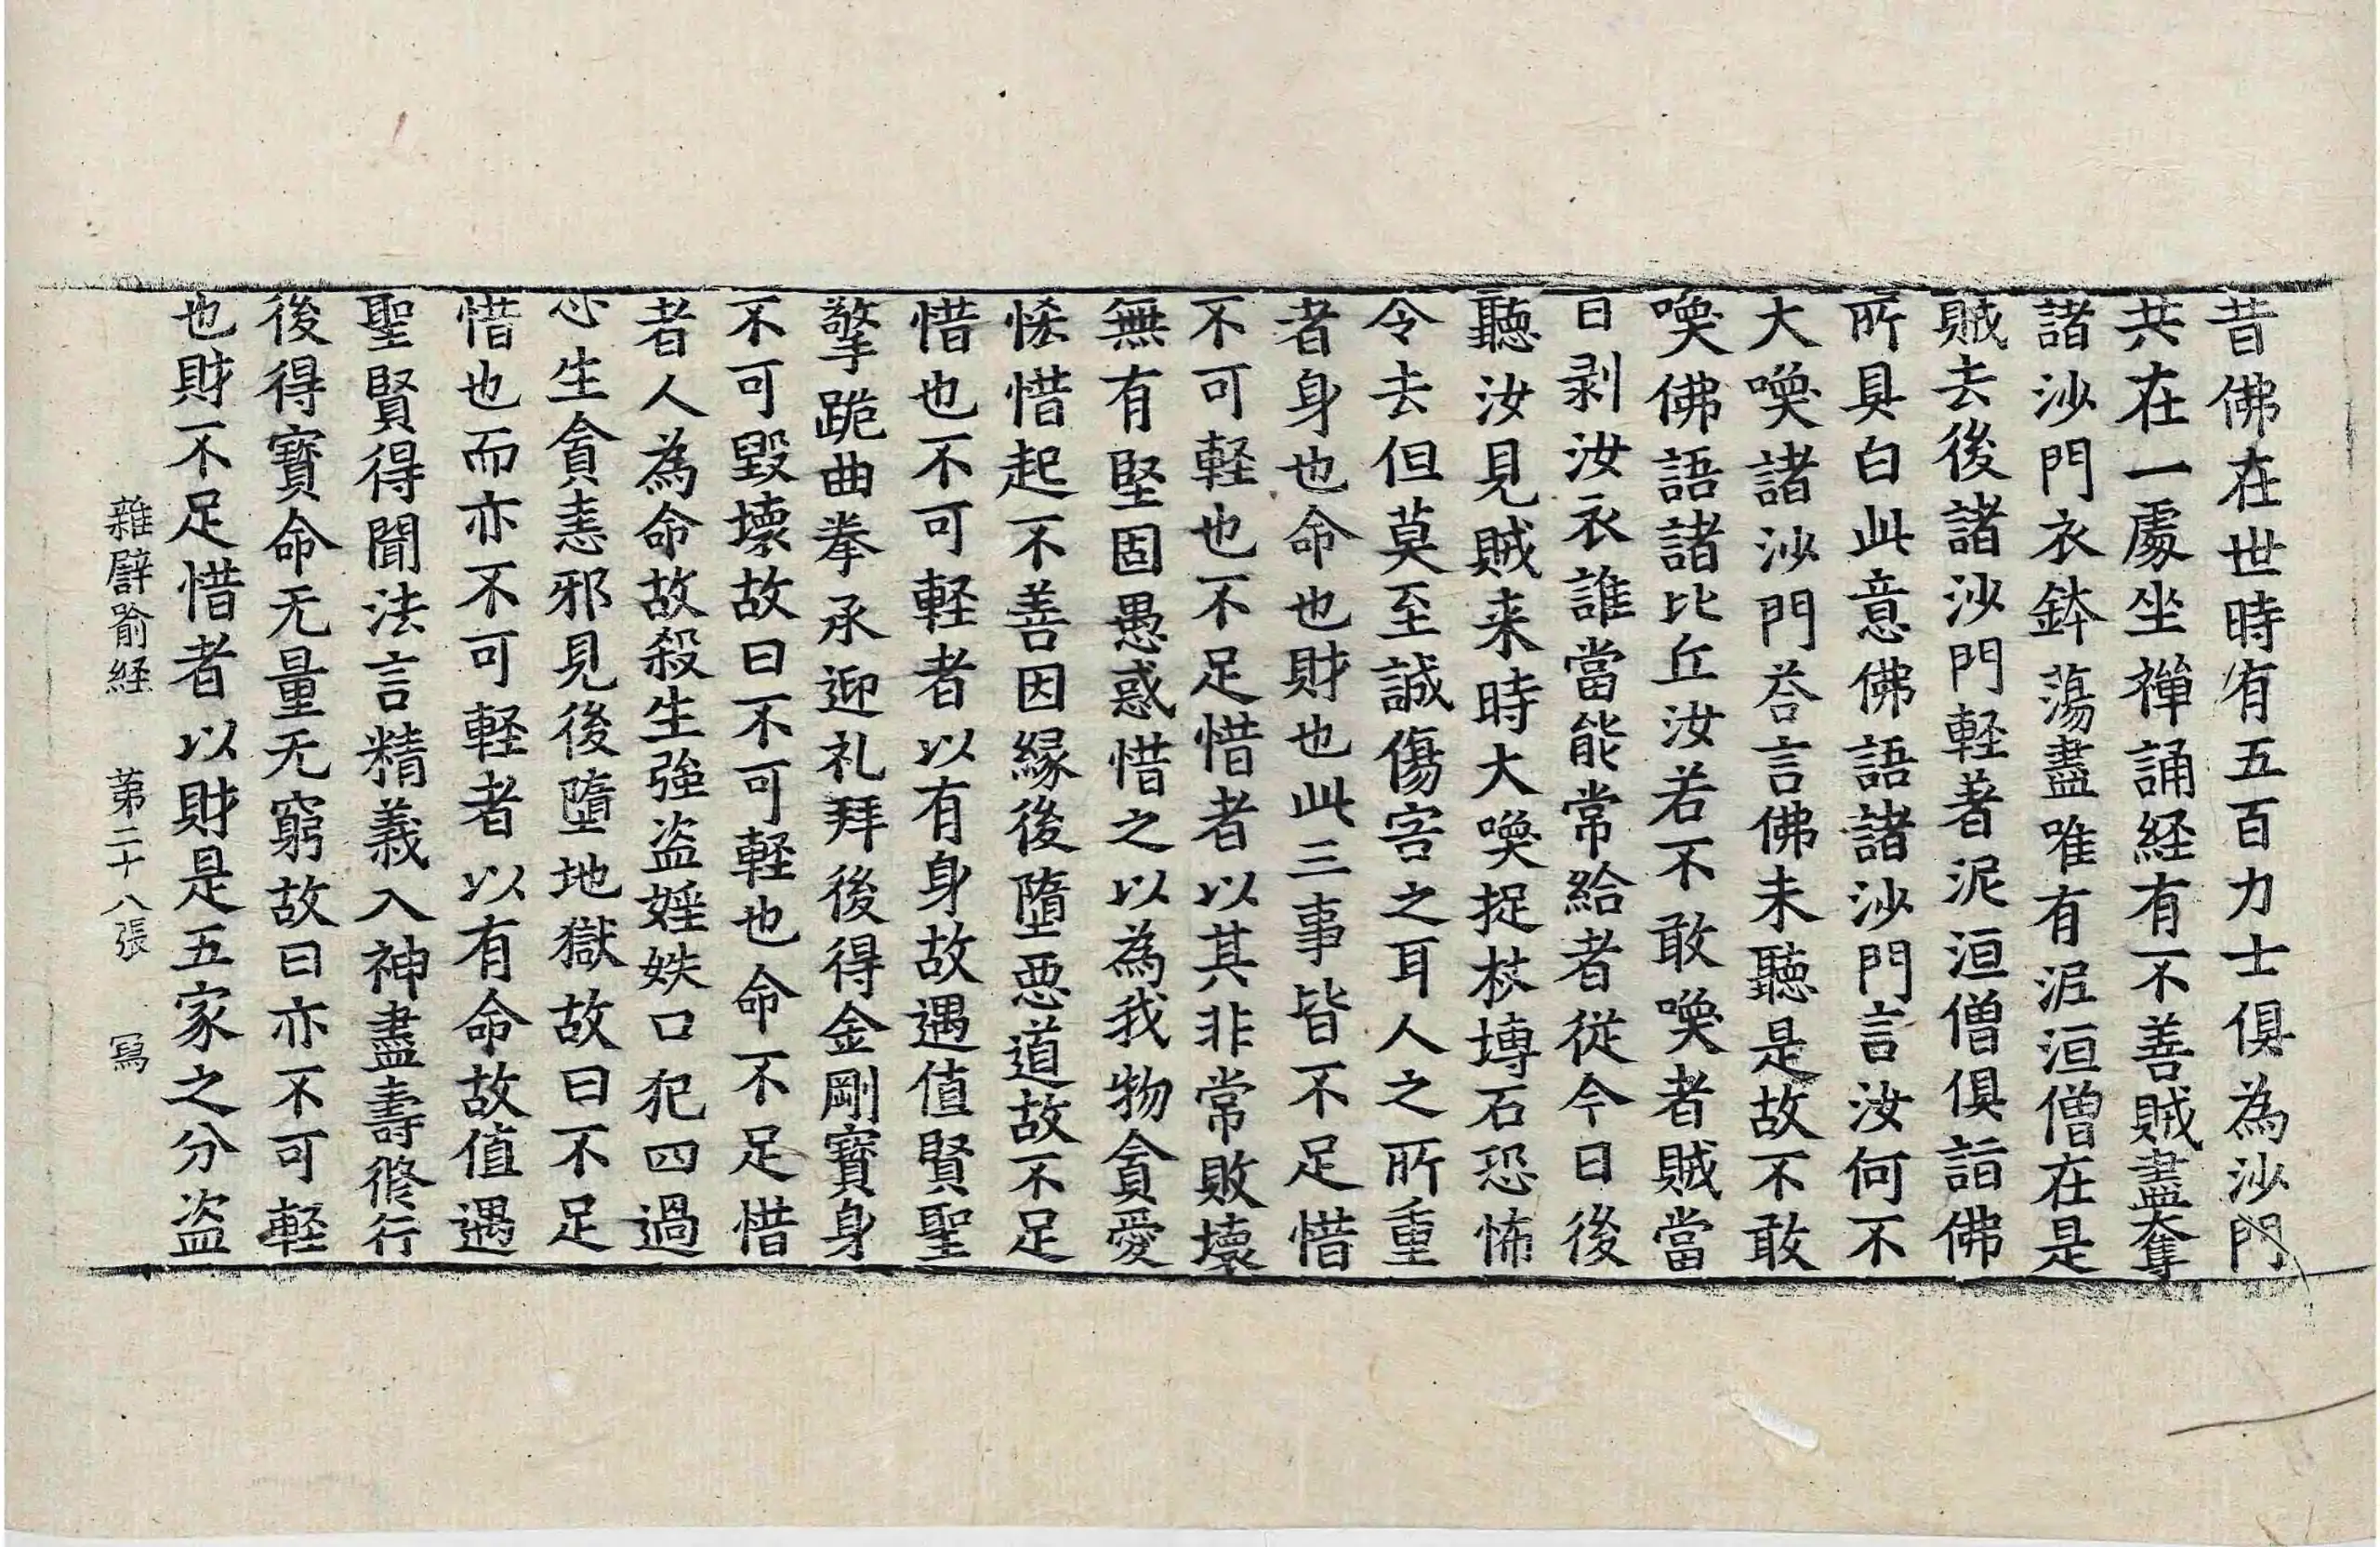 昔佛在世時有五百力士俱為沙門
共在一處坐禪誦経有不善賊盡奪
諸沙門衣鉢蕩盡唯有泥洹僧在是
賊去後諸沙門軽著泥洹僧俱詣佛
所具白此意佛語諸沙門言汝何不
大喚諸沙門荅言佛未聽是故不敢
喚佛語諸比丘汝若不敢喚者賊當
日剥汝衣誰當能常給者從今日後
聽汝見賊来時大喚捉杖塼石恐怖
令去但莫至誠傷害之耳人之所重
者身也命也財也此三事皆不足惜
不可軽也不足惜者以其非常敗壞
無有堅固愚惑惜之以為我物貪愛
悋惜起不善因縁後墮惡道故不足
惜也不可軽者以有身故遇值賢聖
擎跪曲拳承迎礼拜後得金剛寶身
不可毀壞故曰不可軽也命不足惜
者人為命故殺生強盗婬妷口犯四過
心生貪恚邪見後墮地獄故曰不足
惜也而亦不可軽者以有命故值遇
聖賢得聞法言精義入神盡壽脩行
後得寶命无量无窮故曰亦不可軽
也財不足惜者以財是五家之分盗
雜譬喻経　第二十八張　寫